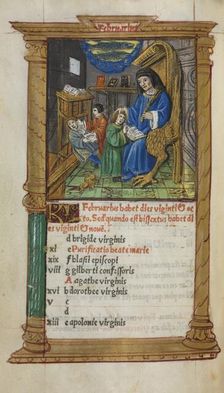 Februarius
Februarius habet dies viginti & oc
to. Sed quando est bissextus habet di
es viginti & noue.
d brigide virginis
xi e Purificatio beate marie
xix f blasii episcopi
viii g gilberti confessoris
A agathe virginis
xvi b dorothee virginis
v c
d
xiii e apolonie virginis